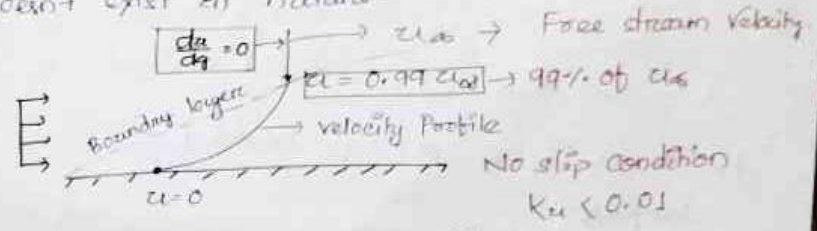 doesn't exist in
du/dy = 0 → u∞ → Free stream velocity
u = 0.99 u∞ → 99% of u∞
Boundry layer
→ velocity Profile
No slip condition
u=0
Kn < 0.01